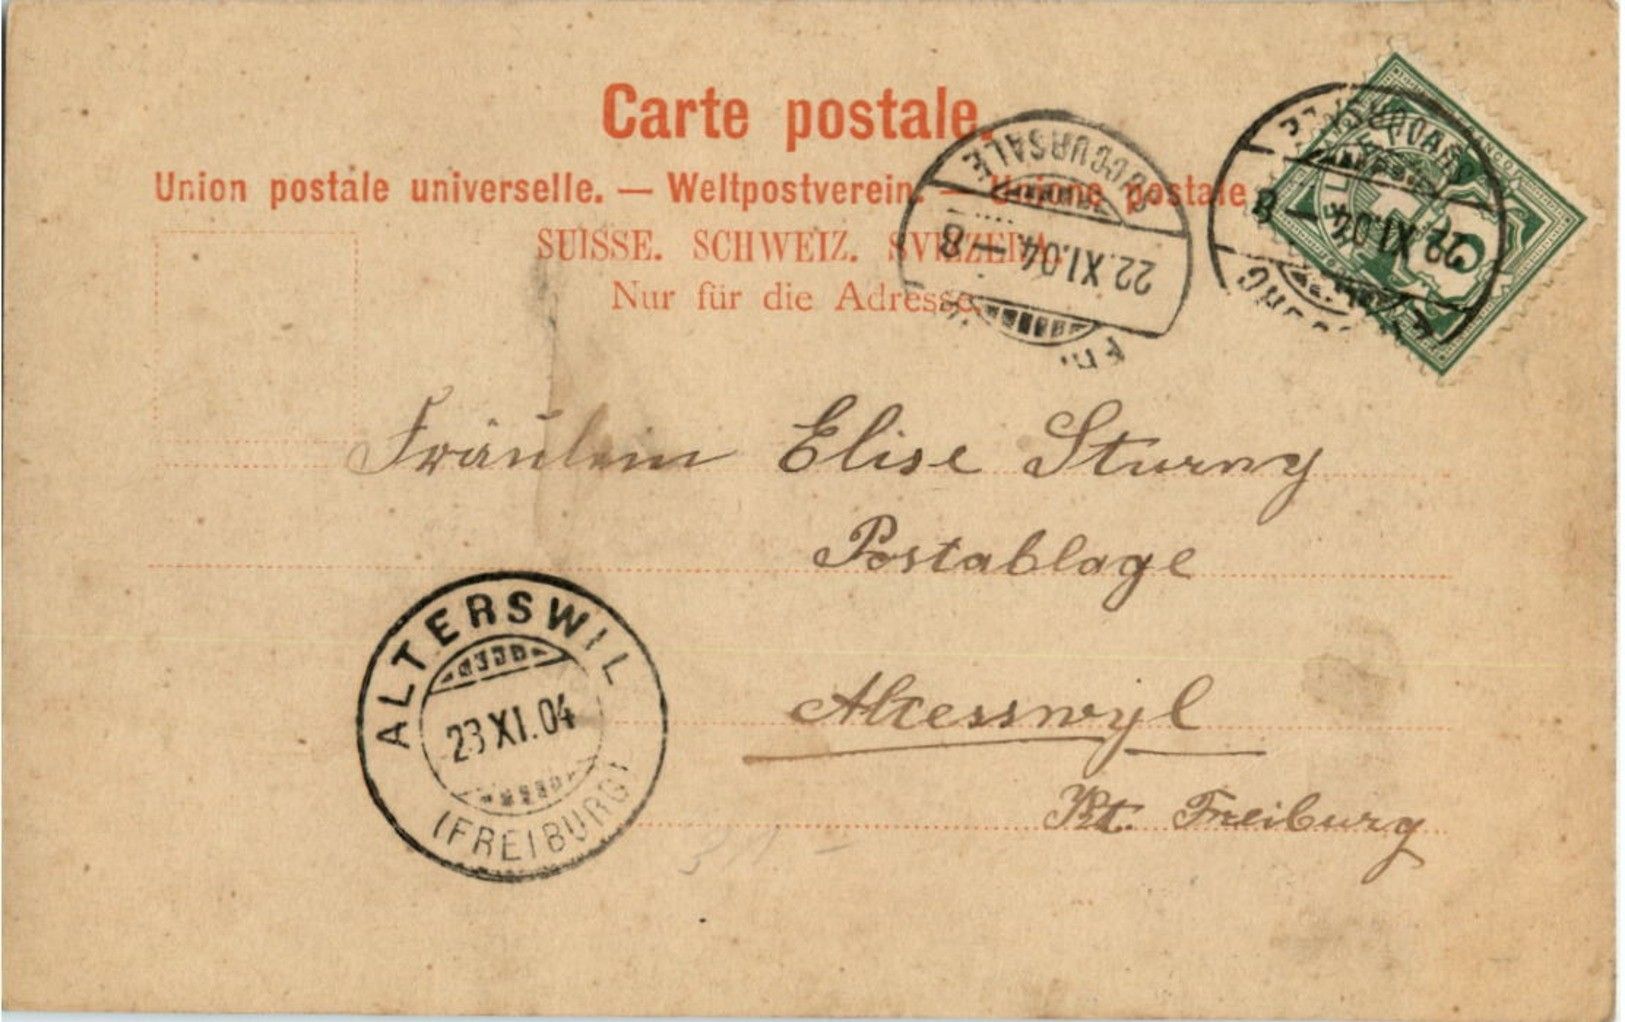 Carte postale.
Union postale universelle. — Weltpostverein. — Unione postale
SUISSE. SCHWEIZ. SVIZZERA.
Nur für die Adresse.
SUCCURSALE
22.XI.04.–8
22.XI.04.–8
Fräulein Elise Sturny
Postablage
Alterswyl
Kt. Freiburg
ALTERSWIL
23.XI.04
(FREIBURG)